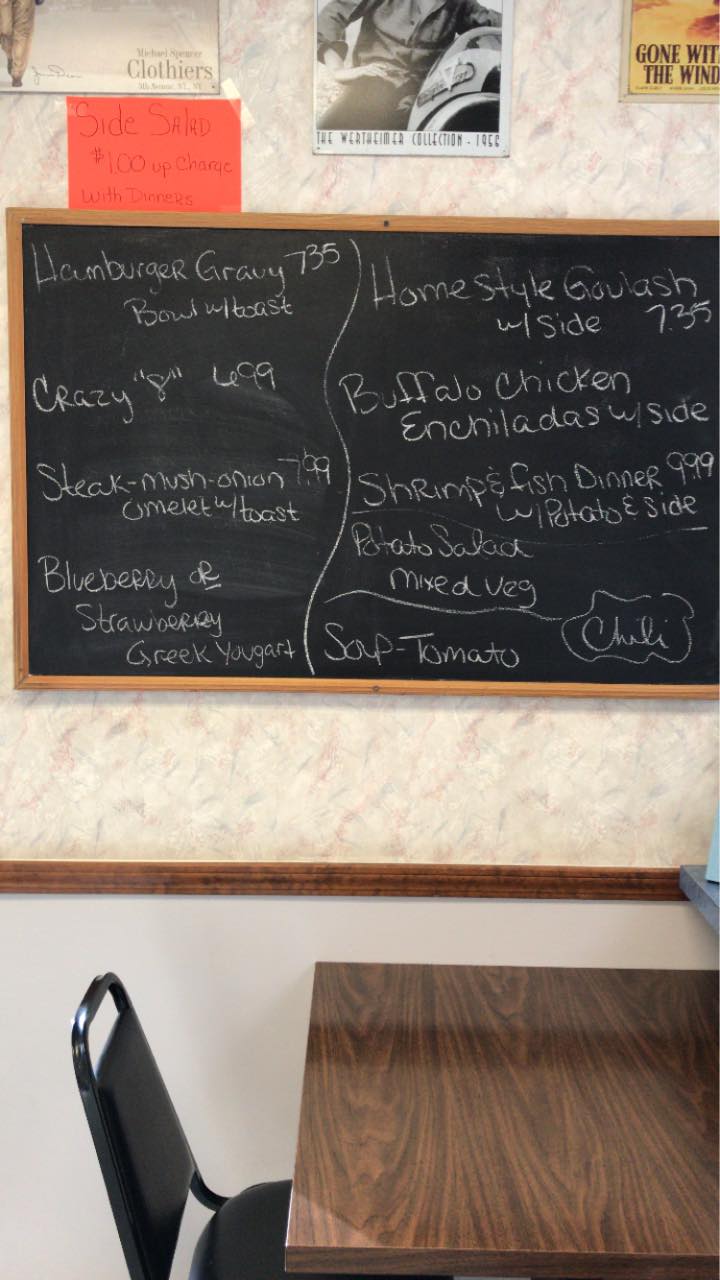 Michael Spencer
Clothiers
5th Avenue, NY., NY
THE WERTHEIMER COLLECTION - 1956
GONE WIT
THE WIND
Side Salad
$1.00 up Charge
With Dinners
Hamburger Gravy 735
Bowl w/toast
Crazy "8" 699
Steak-mush-onion 7.99
omelet w/toast
Blueberry or
Strawberry
Greek Yougart
Homestyle Goulash
w/side 7.35
Buffalo Chicken
Enchiladas w/side
Shrimp & fish Dinner 999
w/Potato & Side
Potato Salad
mixed veg
Soup-Tomato
Chili